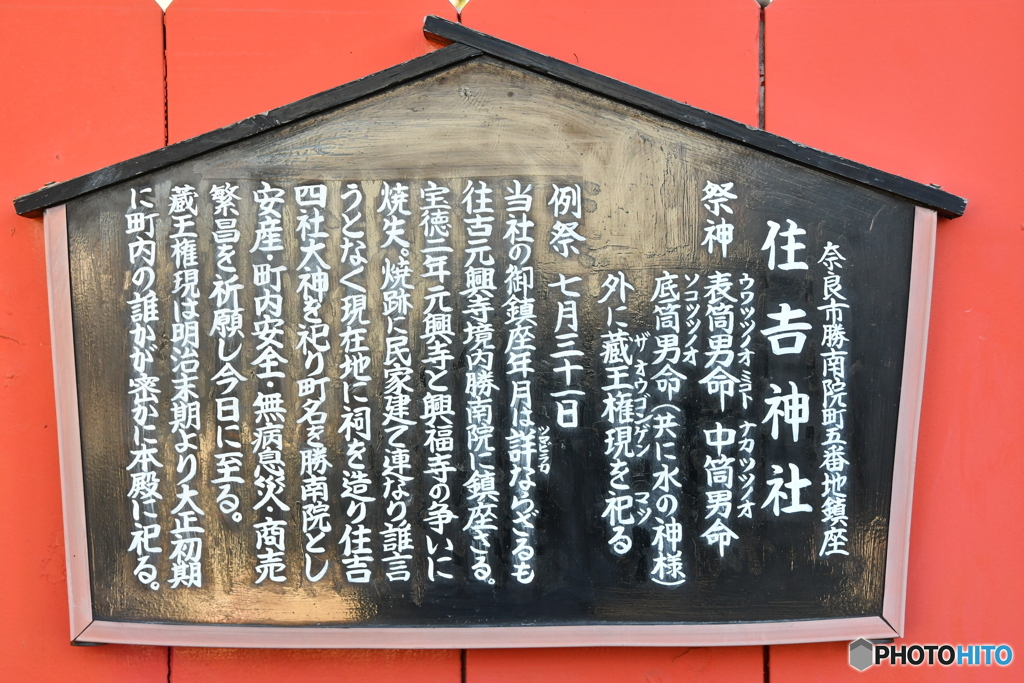 奈良市勝南院町五番地鎮座
住吉神社
祭神 表筒男命 中筒男命
ウワツツノオミコト ナカツツノオ
底筒男命(共に水の神様)
ソコツツノオ
外に蔵王権現を祀る
ザオウゴンゲン マツ
例祭 七月三十一日
当社の御鎮座年月は詳ならざるも
ツマビラカ
往古元興寺境内勝南院に鎮座さる。
宝徳三年元興寺と興福寺の争いに
焼失。焼跡に民家建て連なり誰言
うとなく現在地に祠を造り住吉
四社大神を祀り町名を勝南院とし
安産・町内安全・無病息災・商売
繁昌を祈願し今日に至る。
蔵王権現は明治末期より大正初期
に町内の誰かが密かに本殿に祀る。
PHOTOHITO